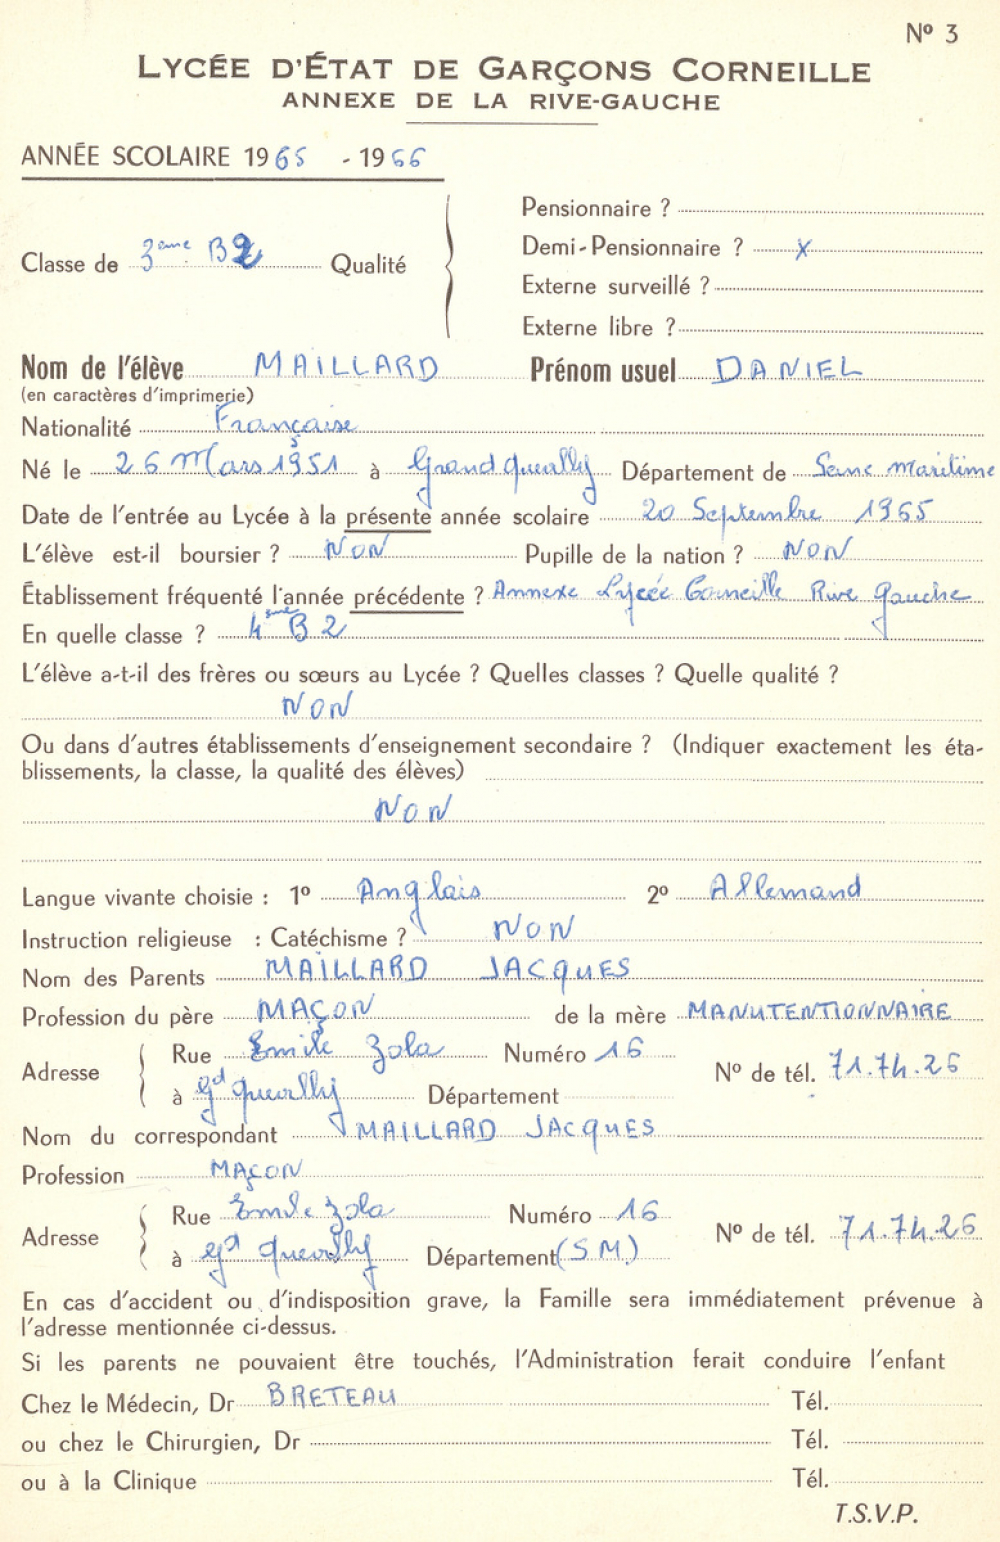 Nº 3
LYCÉE D'ÉTAT DE GARÇONS CORNEILLE
ANNEXE DE LA RIVE-GAUCHE
ANNÉE SCOLAIRE 1965 - 1966
Pensionnaire ?
Demi-Pensionnaire ? x
Classe de 3ème B2 Qualité
Externe surveillé ?
Externe libre ?
Nom de l'élève MAILLARD Prénom usuel DANIEL
(en caractères d'imprimerie)
Nationalité Française
Né le 26 Mars 1951 à Grand Quevilly Département de Seine Maritime
Date de l'entrée au Lycée à la présente année scolaire 20 Septembre 1965
L'élève est-il boursier ? NON Pupille de la nation ? NON
Établissement fréquenté l'année précédente ? Annexe Lycée Corneille Rive Gauche
En quelle classe ? 4ème B2
L'élève a-t-il des frères ou sœurs au Lycée ? Quelles classes ? Quelle qualité ?
NON
Ou dans d'autres établissements d'enseignement secondaire ? (Indiquer exactement les éta-
blissements, la classe, la qualité des élèves)
NON
Langue vivante choisie : 1º Anglais 2º Allemand
Instruction religieuse : Catéchisme ? NON
Nom des Parents MAILLARD JACQUES
Profession du père MAÇON de la mère MANUTENTIONNAIRE
Rue Emile Zola Numéro 16
Adresse Nº de tél. 71.74.26
à Gd Quevilly Département
Nom du correspondant MAILLARD JACQUES
Profession MAÇON
Rue Emile Zola Numéro 16
Adresse Nº de tél. 71.74.26
à Gd Quevilly Département (S.M.)
En cas d'accident ou d'indisposition grave, la Famille sera immédiatement prévenue à
l'adresse mentionnée ci-dessus.
Si les parents ne pouvaient être touchés, l'Administration ferait conduire l'enfant
Chez le Médecin, Dr BRETEAU Tél.
ou chez le Chirurgien, Dr Tél.
ou à la Clinique Tél.
T.S.V.P.